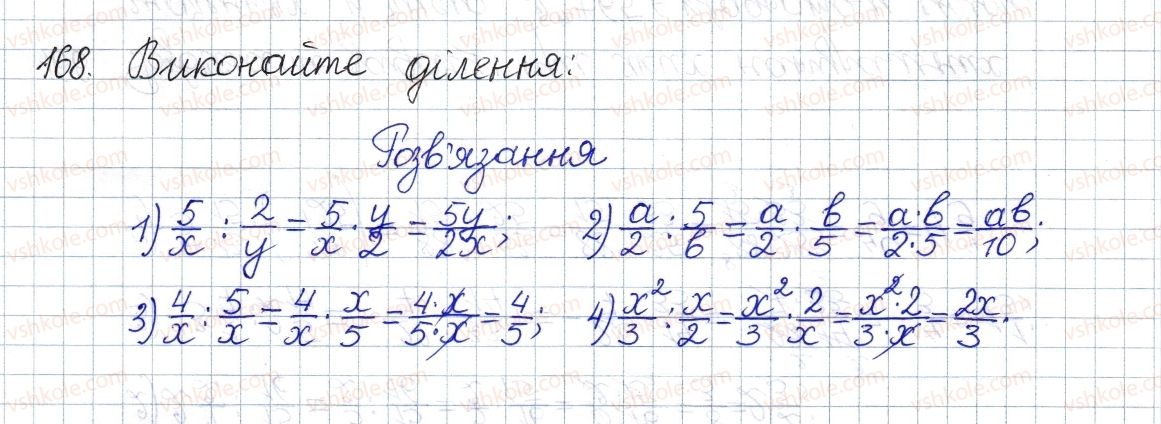 168. Виконайте ділення:
Розв'язання
1) 5/x : 2/y = 5/x · y/2 = 5y/2x; 2) a/2 : 5/b = a/2 · b/5 = a·b/2·5 = ab/10;
3) 4/x : 5/x = 4/x · x/5 = 4·x/5·x = 4/5; 4) x²/3 : x/2 = x²/3 · 2/x = x²·2/3·x = 2x/3.